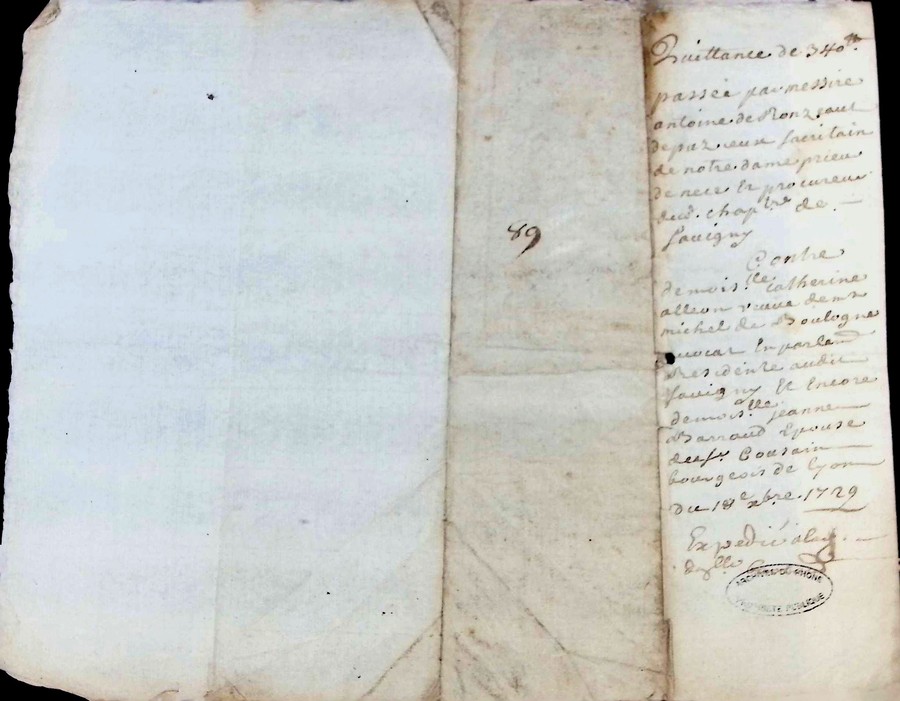 89
Quittance de 340ᵗᵗ.
passée par messire
antoine de Ronzault
depuz eux sacritain
de notre dame prieu
de nece Et procureur
dud. chapᵗʳᵉ de
Savigny
Contre
demoisᵉˡˡᵉ Catherine
alleon veuve de mʳ
michel de Boulogne
avocat En parlemᵗ
Residente audit
Savigny Et Encore
demoisᵉˡˡᵉ jeanne
Barraud Epouse
de sʳ Cousain
bourgeois de Lyon
Du 18ᵉ xbre. 1729
Expedié
ARCHIVES DU RHONE
PROPRIÉTÉ PUBLIQUE